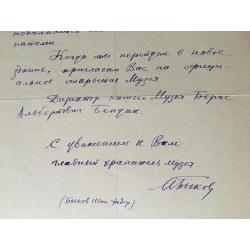 натали.
Когда мы перейдем в новое
здание, пригласим Вас на официальное открытие Музея.
Директор нашего Музея Борис
Альбертович Бендик
С уважением к Вам
главный хранитель музея
АБыков